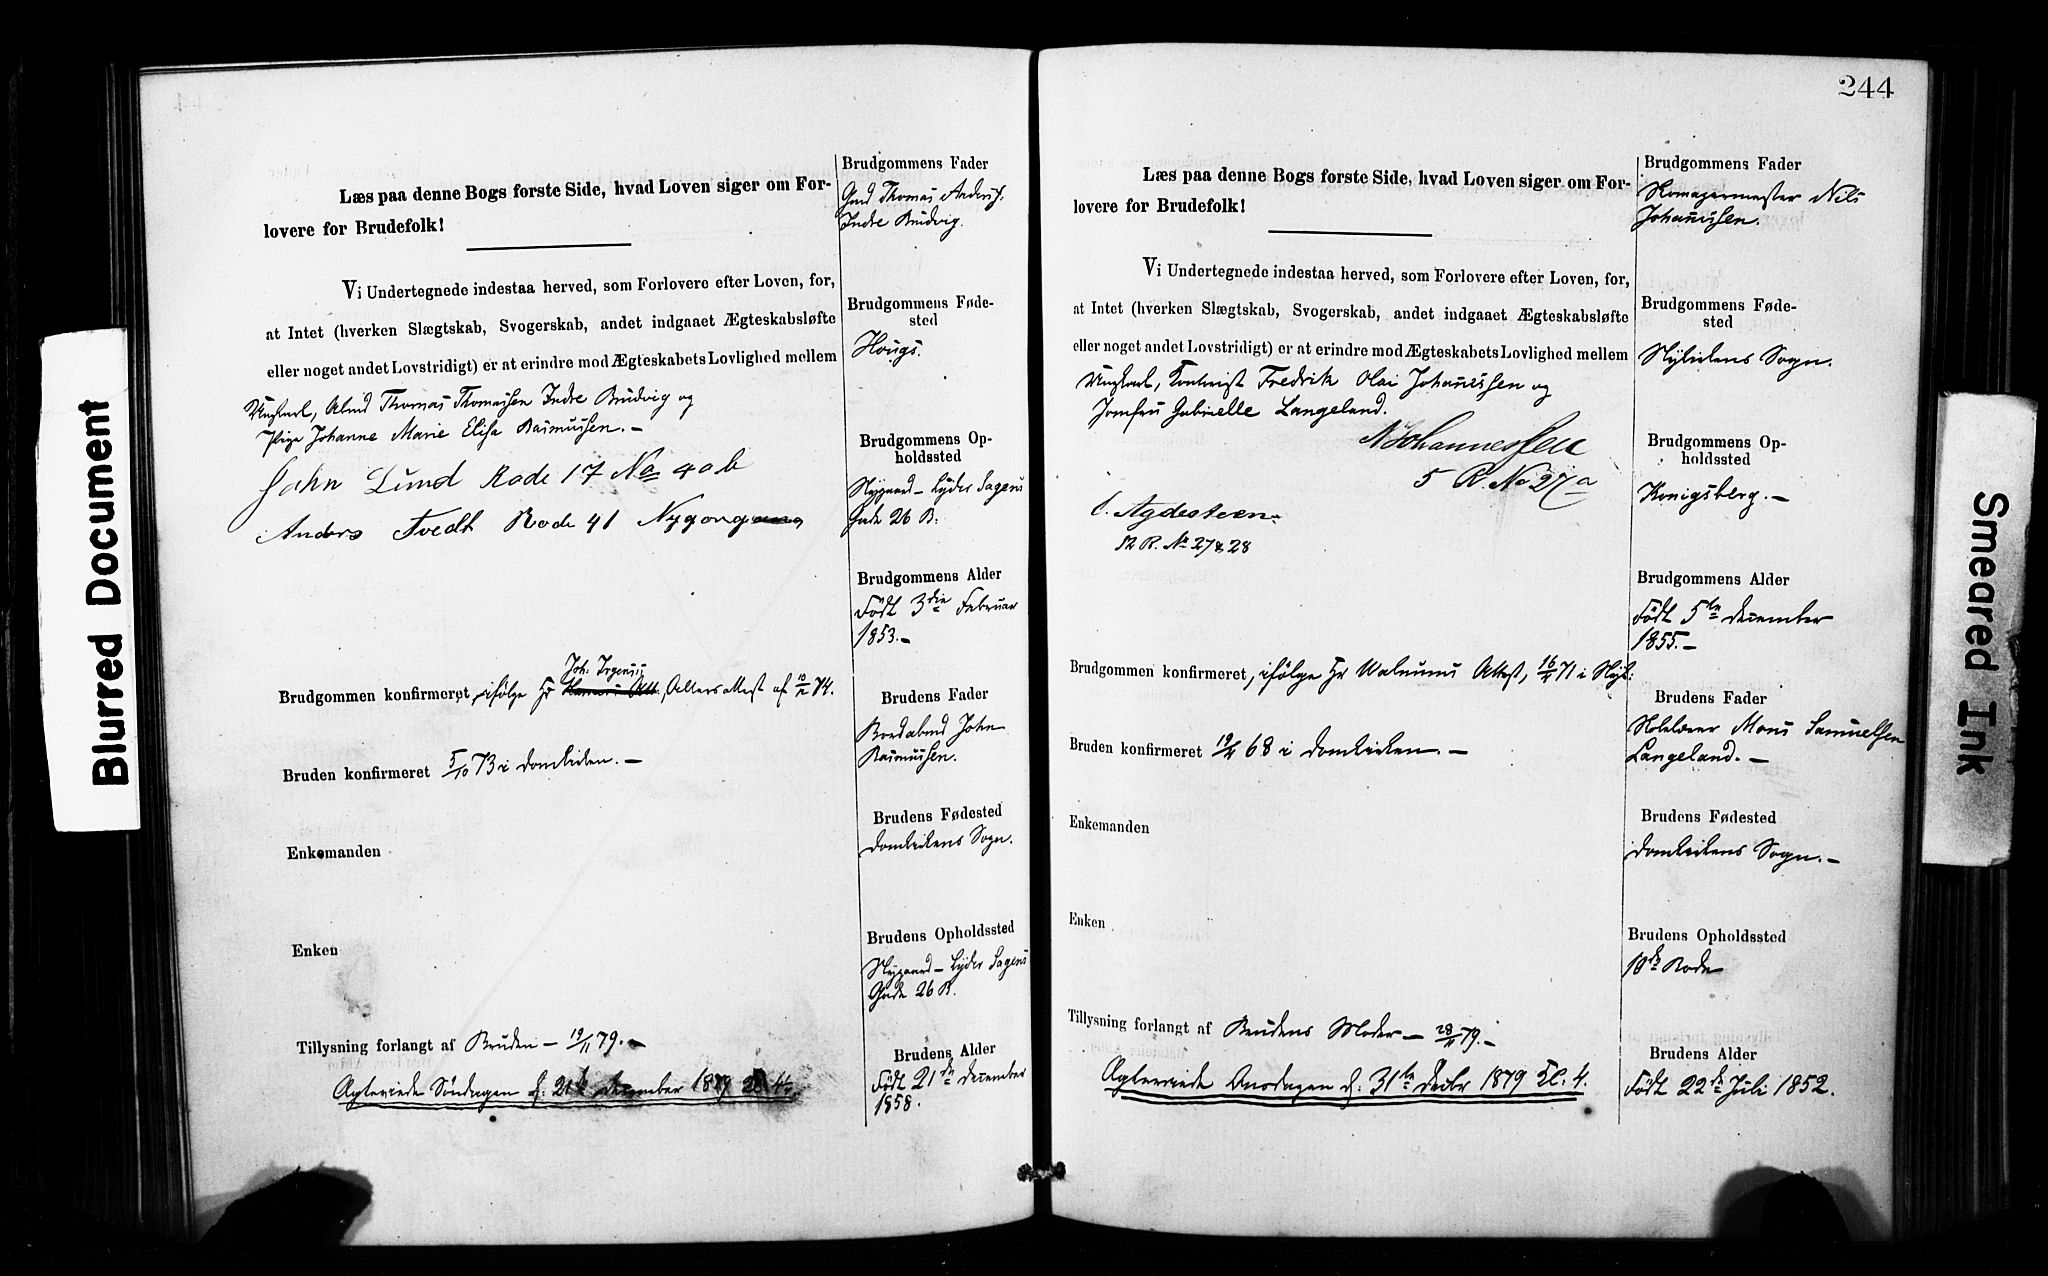 Læs paa denne Bogs forste Side, hvad Loven siger om For-
lovere for Brudefolk!
Vi Undertegnede indestaa herved, som Forlovere efter Loven, for,
at Intet (hverken Slægtskab, Svogerskab, andet indgaaet Ægteskabsløfte
eller noget andet Lovstridigt) er at erindre mod Ægteskabets Lovlighed mellem
Ungkarl, Thomas Thomassen Indre Brudvig og
Pige Johanne Marie Elisa Rasmussen. –
John Lund Rode 17 No 40 b
Anders Tvedt Rode 41 Nygaard
Joh. Irgens's
Brudgommen konfirmeret, ifølge Hr Attest af 10/2 74.
Bruden konfirmeret 5/10 73 i Domkirken. –
Enkemanden
Enken
Tillysning forlangt af Bruden – 19/11 79. –
Agteviede Søndagen d: 21de December 1879
Brudgommens Fader
Gmd Thomas Anders.
Indre Brudvig.
Brudgommens Føde-
sted
Hougs.
Brudgommens Op-
holdssted
Nygaard – Lyder Sagens
Gade 26 B.
Brudgommens Alder
Født 3die Februar
1853. –
Brudens Fader
John
Rasmussen.
Brudens Fødested
Domkirkens Sogn.
Brudens Opholdssted
Nygaard – Lyder Sagens
Gade 26 B.
Brudens Alder
Født 21de December
1858.
244
Læs paa denne Bogs forste Side, hvad Loven siger om For-
lovere for Brudefolk!
Vi Undertegnede indestaa herved, som Forlovere efter Loven, for,
at Intet (hverken Slægtskab, Svogerskab, andet indgaaet Ægteskabsløfte
eller noget andet Lovstridigt) er at erindre mod Ægteskabets Lovlighed mellem
Ungkarl, Kontorist Fredrik Olai Johannessen og
Jomfru Gabrielle Langeland.
N Johannessen
5 R. No 27 a
C. Agdesteen
12 R. No 27 & 28
Brudgommen konfirmeret, ifølge Hr Attest, 16/4 71 i Nyk:
Bruden konfirmeret 19/4 68 i Domkirken. –
Enkemanden
Enken
Tillysning forlangt af Brudens Moder – 28/11 79. –
Agteviede Onsdagen d: 31te Decbr 1879 Kl. 4.
Brudgommens Fader
Skomagermester Nils
Johannessen.
Brudgommens Føde-
sted
Nykirkens Sogn.
Brudgommens Op-
holdssted
Konigsberg. –
Brudgommens Alder
Født 5te December
1855. –
Brudens Fader
Mons Samuelsen
Langeland. –
Brudens Fødested
Domkirkens Sogn. –
Brudens Opholdssted
10de Rode
Brudens Alder
Født 22de Juli 1852.
Blurred Document
Smeared Ink